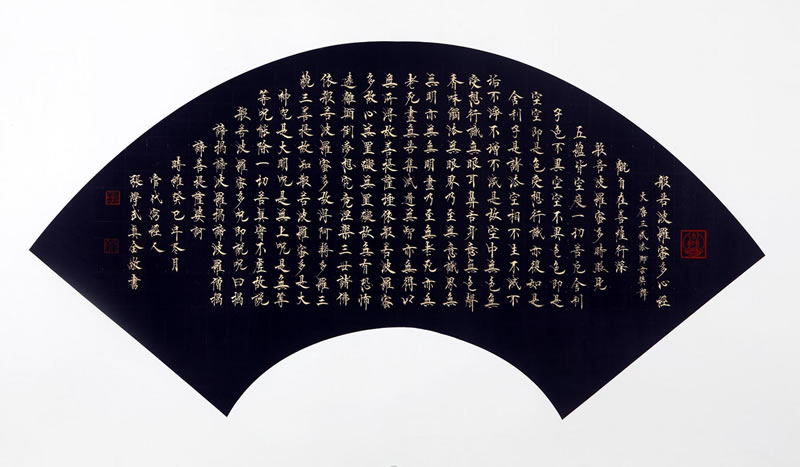 般若波羅蜜多心經
大唐三藏法師玄奘譯
觀自在菩薩行深
般若波羅蜜多時照見
五蘊皆空度一切苦厄舍利
子色不異空空不異色色即是
空空即是色受想行識亦復如是
舍利子是諸法空相不生不滅不
垢不淨不增不減是故空中無色無
受想行識無眼耳鼻舌身意無色聲
香味觸法無眼界乃至無意識界無
無明亦無無明盡乃至無老死亦無
老死盡無苦集滅道無智亦無得以
無所得故菩提薩埵依般若波羅蜜
多故心無罣礙無罣礙故無有恐怖
遠離顛倒夢想究竟涅槃三世諸佛
依般若波羅蜜多故得阿耨多羅三
藐三菩提故知般若波羅蜜多是大
神咒是大明咒是無上咒是無等
等咒能除一切苦真實不虛故說
般若波羅蜜多咒即說咒曰揭
諦揭諦波羅揭諦波羅僧揭
諦菩提薩婆訶
時維癸巳年冬月
當代寫經人
張武真金敬書